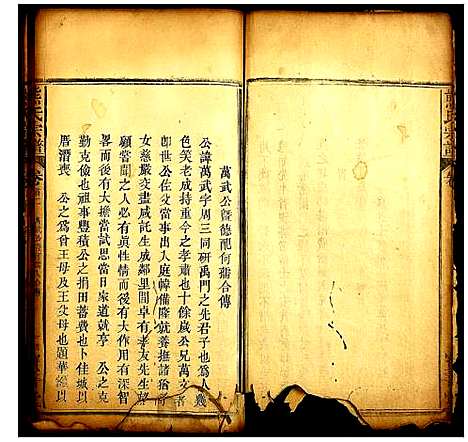 熊氏宗譜
萬武公暨德配何孺合傳
公諱萬武字周三同研禹門之先君子也為人幾
色笑老成持重今之孝肅也十餘歲公兄萬文
即世公佐文當事出入庭幃備隆就養撫諸猶
女慈嚴交盡咸託生成鄰里間卓有孝友先生望
顧嘗聞之人必有真性情而後有大作用有深智
畧而後有大擔當試思當日家道就亨 公之克
勤克儉也祖事豐積公之捐田蓄費也卜佳城以
厝潛喪 公之為曾王母及王父母也題華
熊氏宗譜 卷